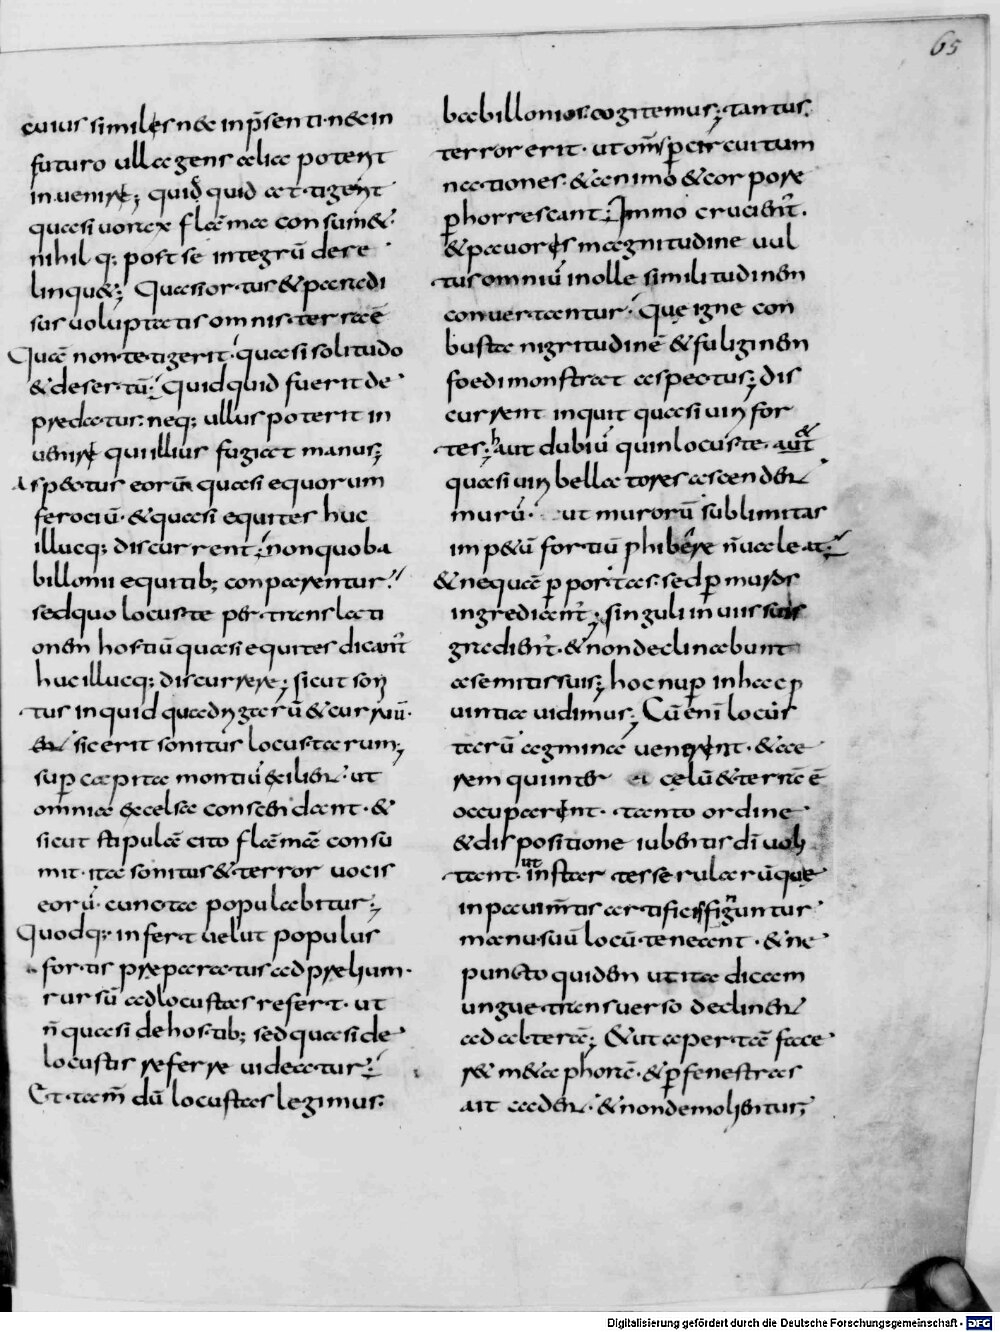 65
cuius similes nec in p̄senti· nec in
futuro ullae gens aliae potent
inuenire; quidquid & tigerit
quasi uorax flāma consum&·
nihil q; post se integrū dere
linqu&; Quasi ortus & paradi
sus uoluptatis omnis terra ē
Quā non tetigerit· quasi solitudo
& desertū; Quidquid fuerit de
predatus· neq; ullus poterit in
uenire qui illius fugiat manus;
Aspectus eorum quasi equorum
ferociū· & quasi equites huc
illucq; discurrent; non quo ba
billonii equitib; conparentur
sed quo locuste per translati
onem hostiū quasi equites dicant̄
huc illucq; discurrere; sicut son
tus inquid quadrigarū & curruū·
sic erit sonitus locustarum;
sup̄ capita montiū exilien̄· ut
omnia excelsa conscendant· &
sicut stipulā cito flāmā consu
mit· ita sonitus & terror uocis
eorū· cuncta populabitur;
Quodq; infert uelut populus
fortis preparatus ad prelium·
rursū ad locustas refert· ut
n̄ quasi de hostib; sed quasi de
locustis referre uideatur;
Et tam̄ dū locustas legimus·
babillonios cogitemus; tantus
terror erit· ut om̄s p̄ circuitum
nationes· & animo & corpore
p̄horrescant; Immo crucient̄·
& pauoris magnitudine uul
tus omniū in olle similitudinem
conuertantur· Que igne con
busta nigritudinē & fuliginem
foedi monstrat aspectus; dis
current inquit quasi uiri for
tes; haut dubiū quin locuste· aut
quasi uiri bellatores ascenden̄
murū· ut murorū sublimitas
imp&ū fortiū phibere n̄ ualeat;
& nequā p̄ portas· sed p̄ muros
ingrediant̄; singuli in uiis suis
gradient̄· & non declinabunt
a semitis suis; hoc nup̄ in hac p
uintia uidimus; Cū eni locus
tarū agmina uenirent· & ae
rem qui inter celū & terrā ē
occuparent· tanto ordine
& dispositione iubentis dī uoli
tant· ut instar tesserularū que
in pauimtis artificis figuntur
manu· suū locū teneant· & ne
puncto quidem ut ita dicam
ungue transuerso declinen̄
ad alterā; & ut apertā face
r& m&aphorā· & p̄ fenestras
ait aden̄· & non demolientur;
Digitalisierung gefördert durch die Deutsche Forschungsgemeinschaft · DFG